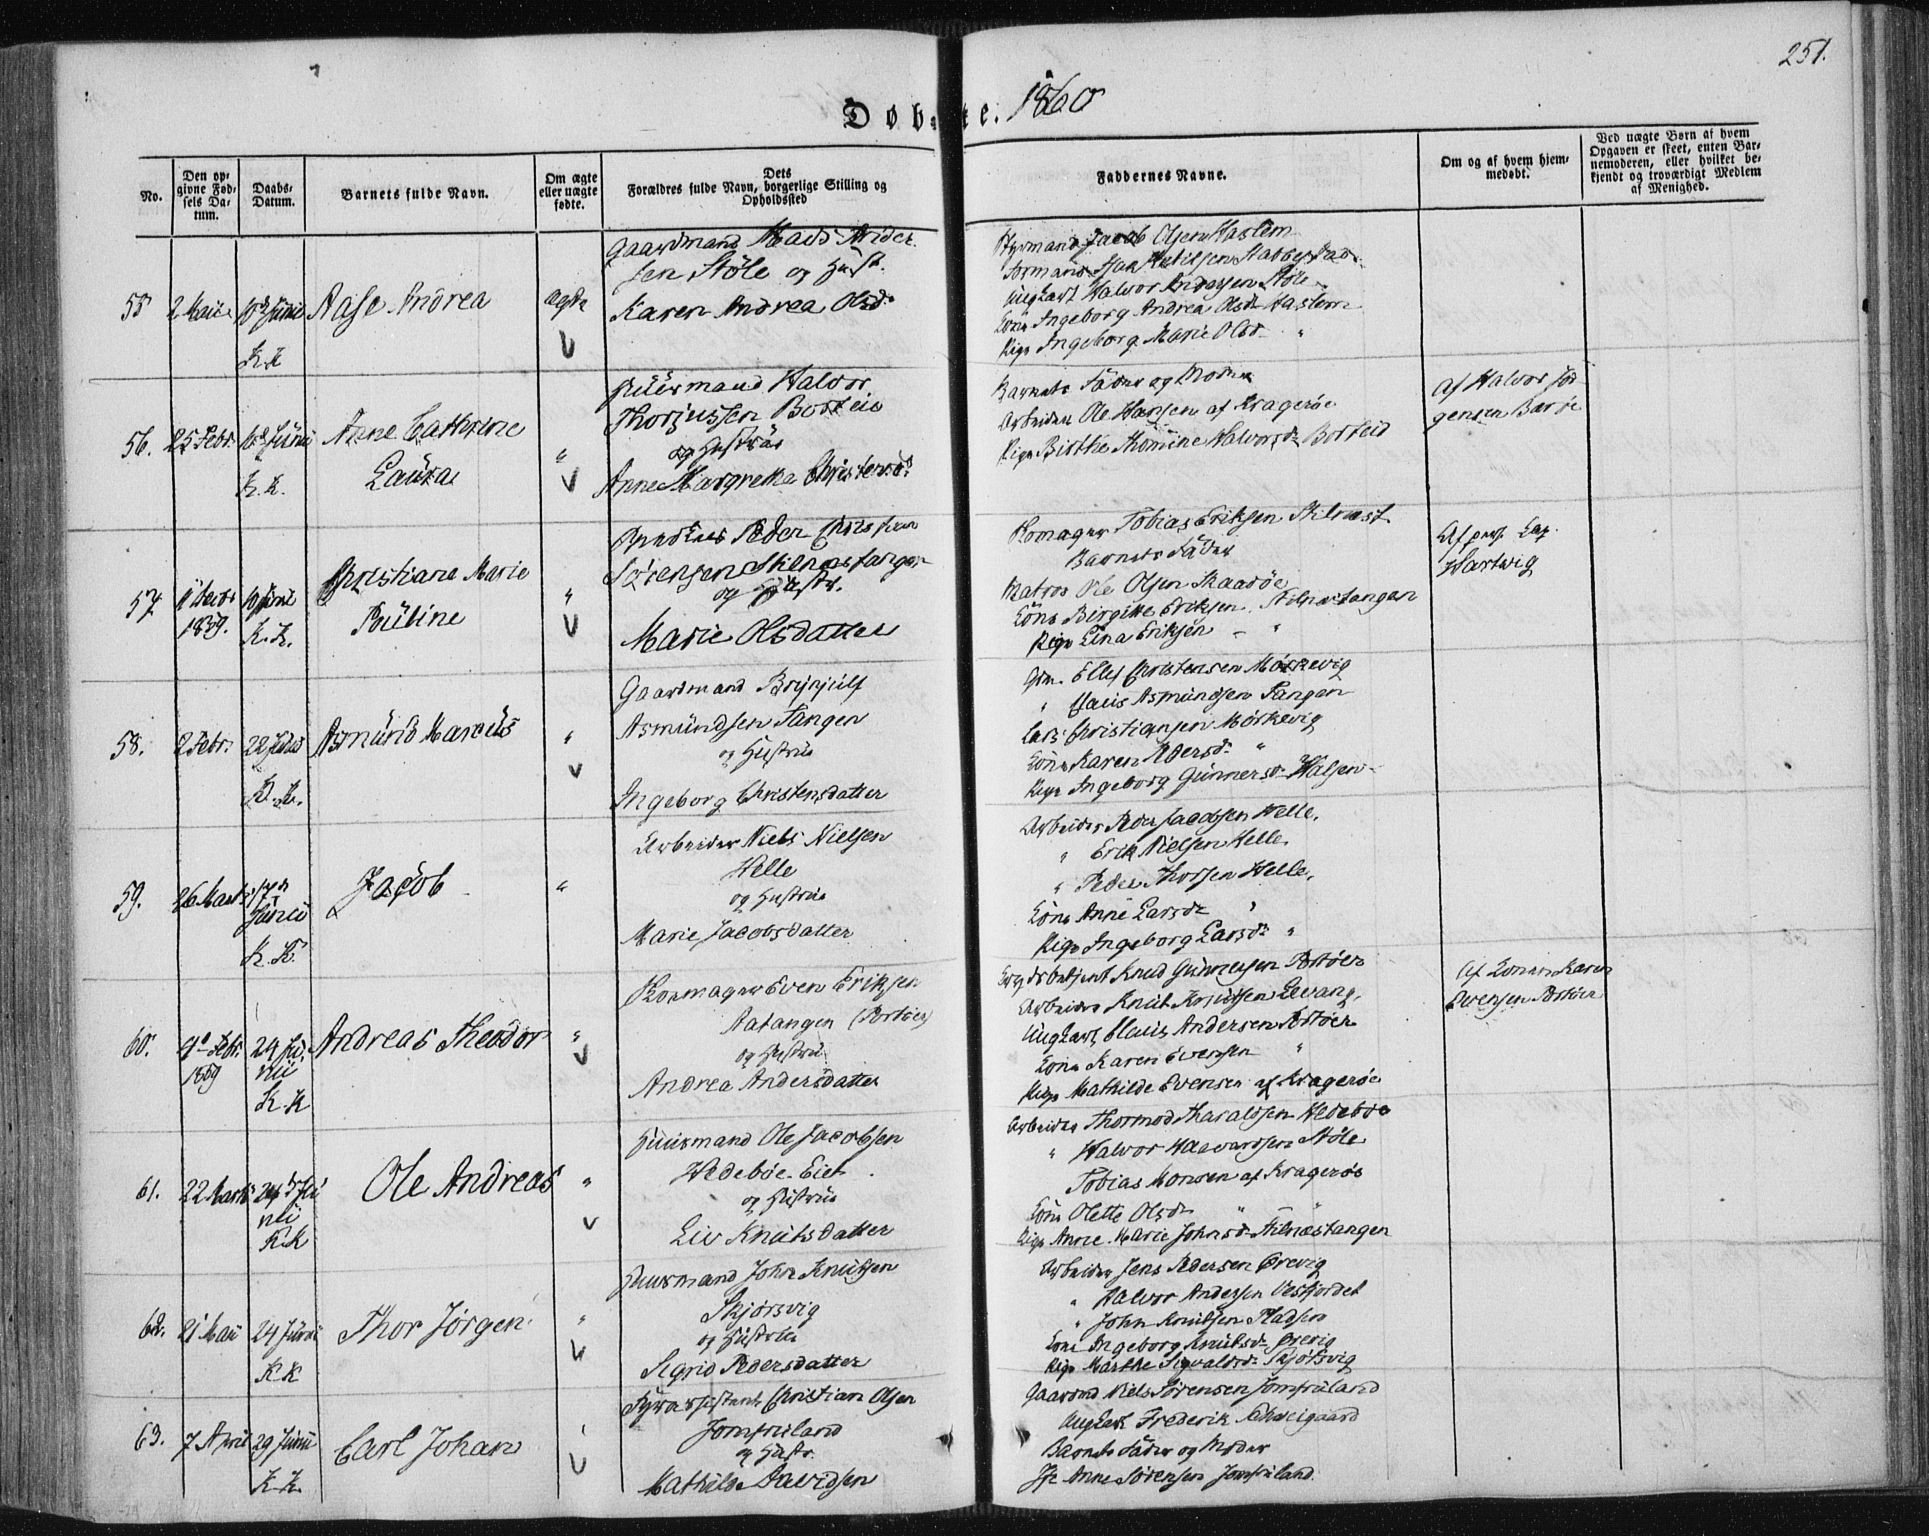 251.
Døbte. 1860
No.
Den opgivne Fødsels Datum.
Daabs-Datum.
Barnets fulde Navn.
Om ægte eller uægte fødte.
Dets Forældres fulde Navn, borgerlige Stilling og Opholdssted
Faddernes Navne.
Om og af hvem hjemmedøbt.
Ved uægte Børn af hvem Opgaven er skeet, enten Barnemoderen, eller hvilket bekjendt og troværdigt Medlem af Menighed.
55
2 Maii
10de Junii
K.K
Aase Andrea
ægte
Gaardmand Mads Ander
sen Støle og Hust.
Karen Andrea Olsd.
Styrmand Jacob Olsen Haslem
Ungkarl Halvor Andersen Støle
Kone Ingeborg Andrea Olsdr Haslem
Pige Ingeborg Marie Olsdr "
56.
25 Febr.
10de Junii
K.K.
Anne Cathrine
Laura
"
Huusmand Halvor
Thorjussen Borteid
og Hustrue
Anne Margrethe Christensd.
Barnets Fader og Moder
Arbeider Ole Hansen af Kragerøe
Pige Birthe Thomine Halvorsdr Borteid
af Halvor Jør
gensen Barøe
57.
1859.
10 Junii
K.K.
Christiane Marie
Pauline
"
Peder Christian
Sørensen Stilnestangen
og Hustr.
Marie Olsdatter
Skomager Tobias Eriksen Stilnæst.
Barnets Fader
Matros Ole Olsen Skaadøe
Kone Birgitte Eriksen Stilnæstangen
Pige Lina Eriksen - "
Af pers. Cap.
Hartvig
58.
2 Febr.
22 Junii
K.K.
Asmund Marcus
"
Gaardmand Brynjulf
Asmundsen Tangen
og Hustrue
Ingeborg Christensdatter
Gm. Ellef Christensen Mørkevig
" Claus Asmundsen Tangen
Lars Christiansen Mørkevig
Kone Karen Pedersdr "
Pige Ingeborg Gunnersdr Halsen
59.
26 Marts
17de
Junii
K.K.
Jacob
"
Arbeider Niels Nielsen
Helle
og Hustrue
Marie Jacobsdatter
Arbeider Peder Jacobsen Helle.
" Erik Nielsen Helle
" Peder Thorsen Helle.
Kone Anne Larsdr "
Pige Ingeborg Larsdr "
60.
9de Febr.
1859
24 Ju-
nii
K.K
Andreas Theodor
"
Skomager Even Eriksen
Aatangen (Portøer)
og Hustru
Andrea Andersdatter
Knud Gunnersen Portøer
Arbeider Knut Knutsen Levang.
Ungkarl Claus Andersen Portøer
Kone Karen Evensen "
Pige Mathilde Evensen af Kragerøe
Af Konen Karen
Evensen Portøer
61.
22 Marts
24de Ju
nii
K.K
Ole Andreas
"
Huusmand Ole Jacobsen
Hedebøe-Eiet
og Hustrue
Liv Knutsdatter
Arbeider Thormod Haraldsen Hedebøe
" Halvor Haavardsen Støle
Tobias Monsen af Kragerøe
Kone Olette Olsdr " "
Pige Anne Marie Johnsdr Stilnæstangen
62.
21 Maii
24 Junii
K.K
Thor Jørgen
"
Huusmand John Knutsen
Skjørsvig
og Hustrue
Sigrid Pedersdatter
Arbeider Jens Pedersen Ørevig
" Halvor Andersen Vestfjordet
" John Knutsen Pladsen
Kone Ingeborg Knutsdr Ørevig
Pige Marthe Sigvaldsdr Skjørsvig
63.
7 April
29 Junii
K.K.
Carl Johan
"
Fyrassistent Christian Olsen
Jomfruland
og Hustr.
Mathilde Davidsen
Gaardmd Niels Sørensen Jomfruland
Ungkarl Frederik Schweigaard
Barnets Fader og Moder
Jfr Anne Sørensen Jomfruland